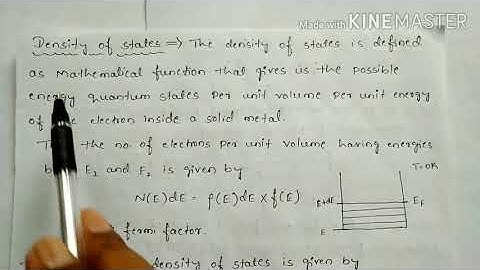 Made with KINEMASTER
Density of states → The density of states is defined
as Mathematical function that gives us the possible
energy quantum states per unit volume per unit energy
of electron inside a solid metal.
the no. of electrons per unit volume having energies
E₂ and E₁ is given by
N(E)dE = ρ(E)dE × f(E)
T=0K
E+dE
E_F
E
fermi factor.
density of states is given by